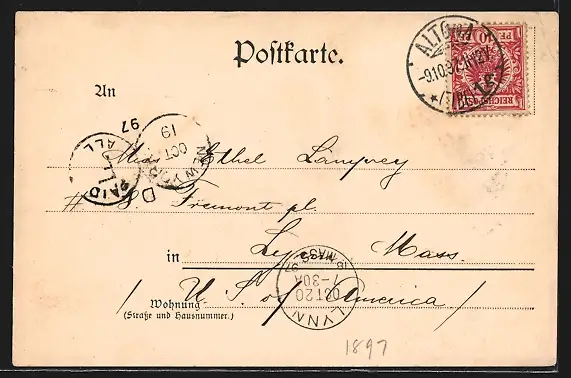 Postkarte.
ALTONA
-9.10.97
10 PF
REICHSPOST
An
NEW YORK
OCT
19
97
D
PAID
ALL
Miss Ethel Lamprey
# 8. Fremont pl.
in Lynn Mass.
LYNN
OCT 20
7-30A
97
MASS.
Wohnung
(Straße und Hausnummer.)
/ U. S. of America /
1897